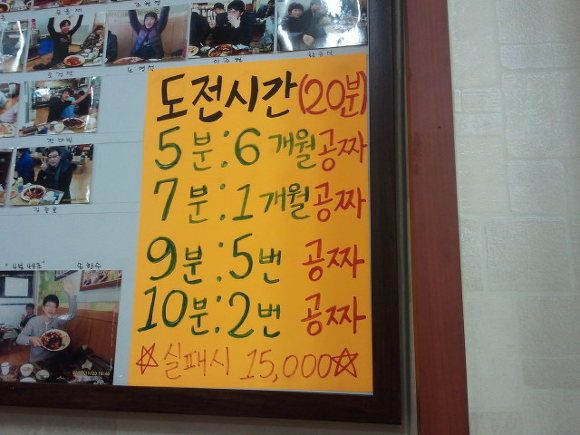 도전시간(20분)
5분:6개월 공짜
7분:1개월 공짜
9분:5번 공짜
10분:2번 공짜
☆실패시 15,000☆